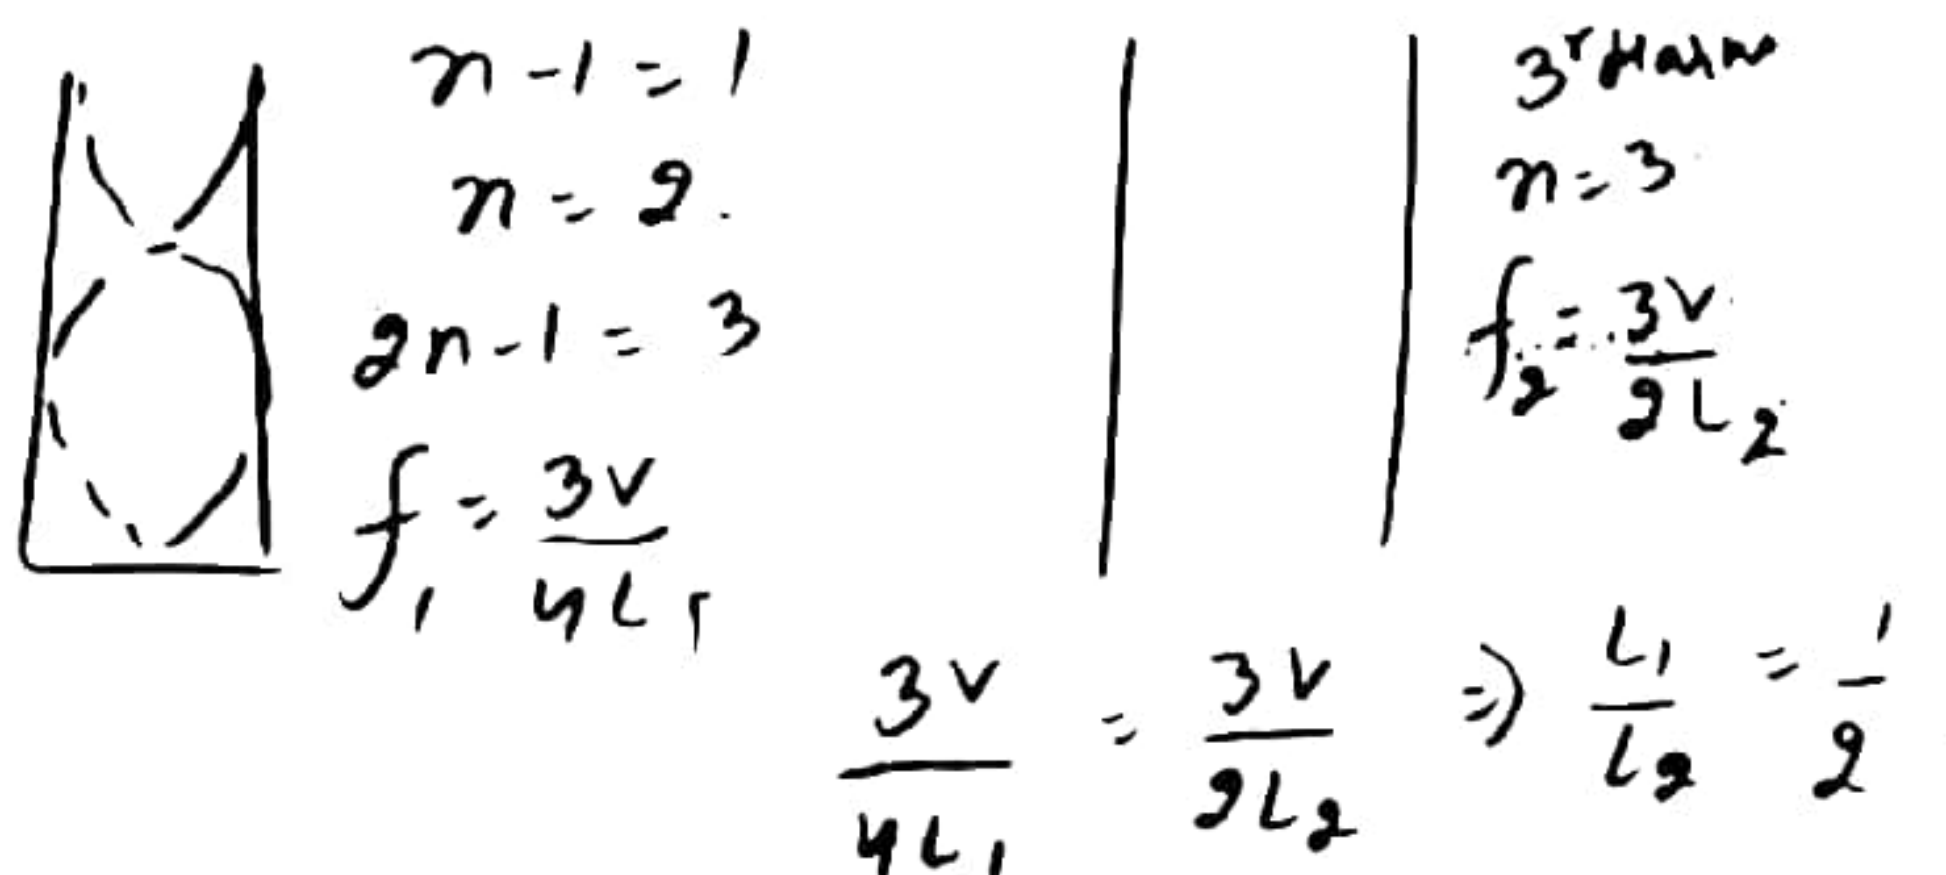 n-1 = 1
n = 2.
2n-1 = 3
f₁ = 3v/4L₁
3ʳ Harm
n = 3
f₂ = 3v/2L₂
3v/4L₁ = 3v/2L₂ ⇒ L₁/L₂ = 1/2